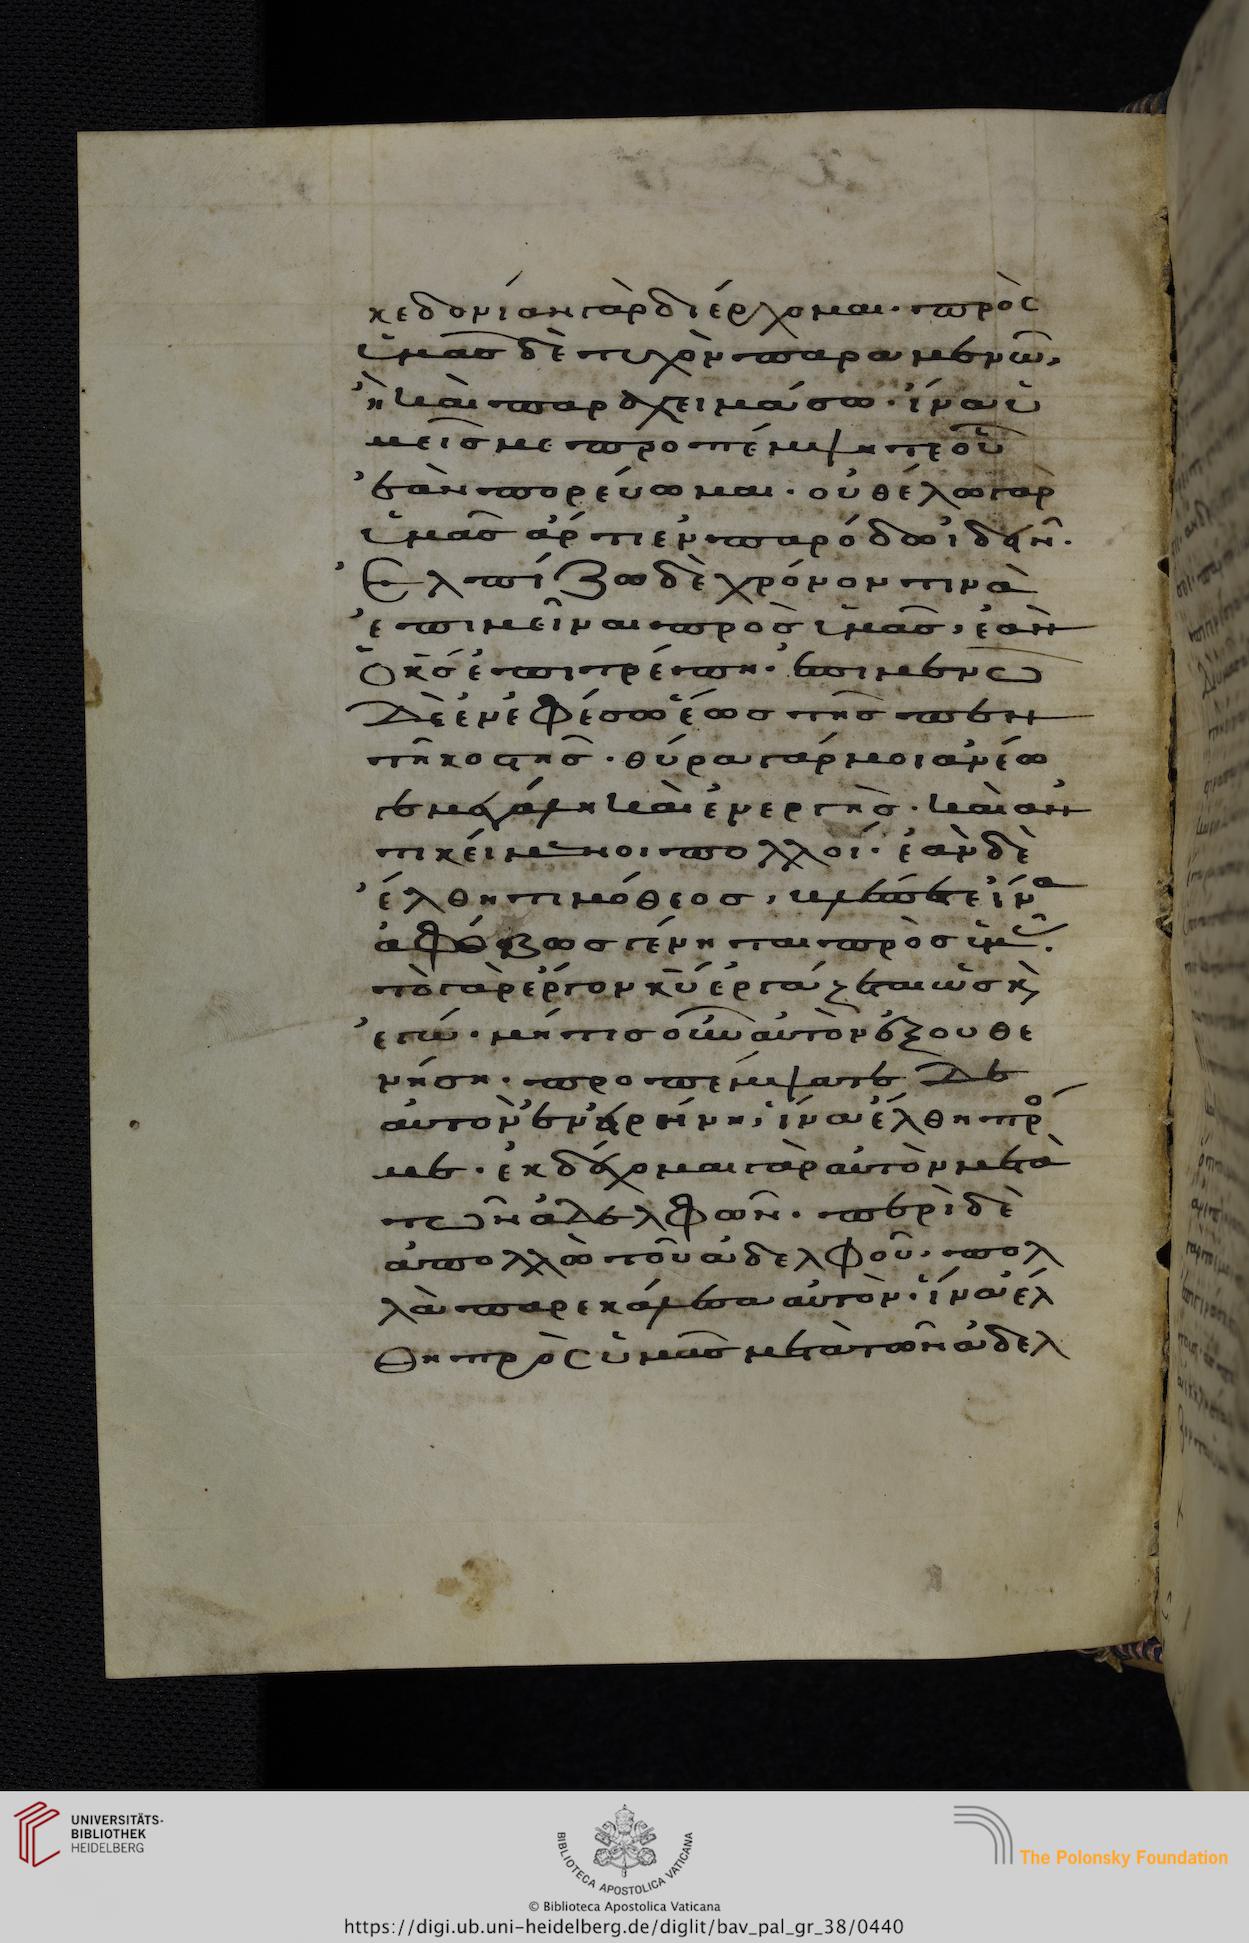 κεδονίαν γὰρ διέρχομαι· πρὸς
ὑμᾶς δὲ τυχὸν παραμενῶ,
ἢ καὶ παραχειμάσω· ἵνα ὑ
μεῖς με προπέμψητε οὗ
ἐὰν πορεύωμαι· οὐ θέλω γὰρ
ὑμᾶς ἄρτι ἐν παρόδω ἰδεῖν·
Ἐλπίζω δὲ χρόνον τινὰ
ἐπιμεῖναι πρὸς ὑμᾶς, ἐὰν
ὁ κς ἐπιτρέπη· ἐπιμενῶ
δὲ ἐν ἐφέσω ἕως τῆς πεν
τηκοστῆς· θύρα γάρ μοι ἀνέω
γε μεγάλη καὶ ἐνεργὴς· καὶ ἀν
τικείμενοι πολλοί· ἐὰν δὲ
ἔλθη τιμόθεος, βλέπετε ἵνα
ἀφόβως γένηται πρὸς ὑμᾶς·
τὸ γὰρ ἔργον κυ ἐργάζεται ὡς κὶ
ἐγώ· μή τις οὖν αὐτὸν ἐξουθε
νήση· προπέμψατε δὲ
αὐτὸν ἐν εἰρήνη, ἵνα ἔλθη πρό
με· ἐκδέχομαι γὰρ αὐτὸν μετὰ
τῶν ἀδελφῶν· περὶ δὲ
ἀπολλὼ τοῦ ἀδελφοῦ· πολ
λὰ παρεκάλεσα αὐτὸν· ἵνα ἔλ
θη πρὸς ὑμᾶς μετὰ τῶν ἀδελ
UNIVERSITÄTS-
BIBLIOTHEK
HEIDELBERG
BIBLIOTECA APOSTOLICA VATICANA
The Polonsky Foundation
© Biblioteca Apostolica Vaticana
https://digi.ub.uni-heidelberg.de/diglit/bav_pal_gr_38/0440